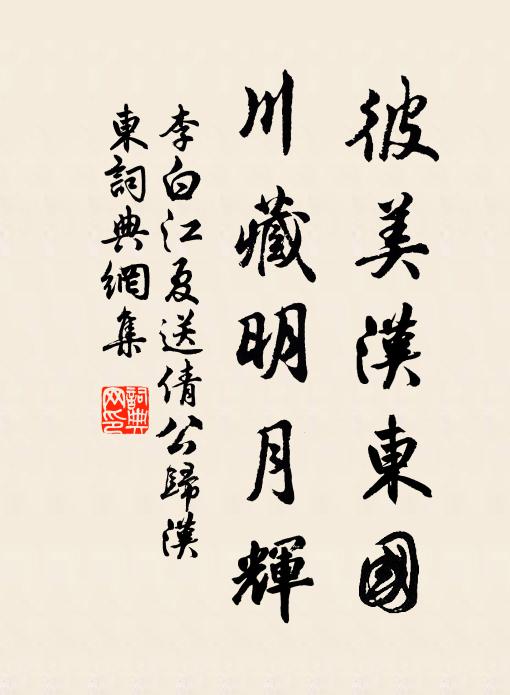 彼美漢東國
川藏明月輝
李白江夏送倩公歸漢
東詞典網集
詞典
网印